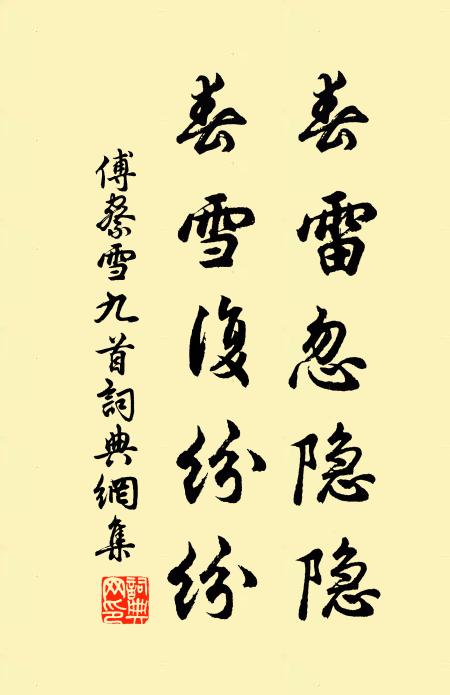 春雷忽隐隐
春雪復紛紛
傅察雪九首詞典網集
詞典
网印